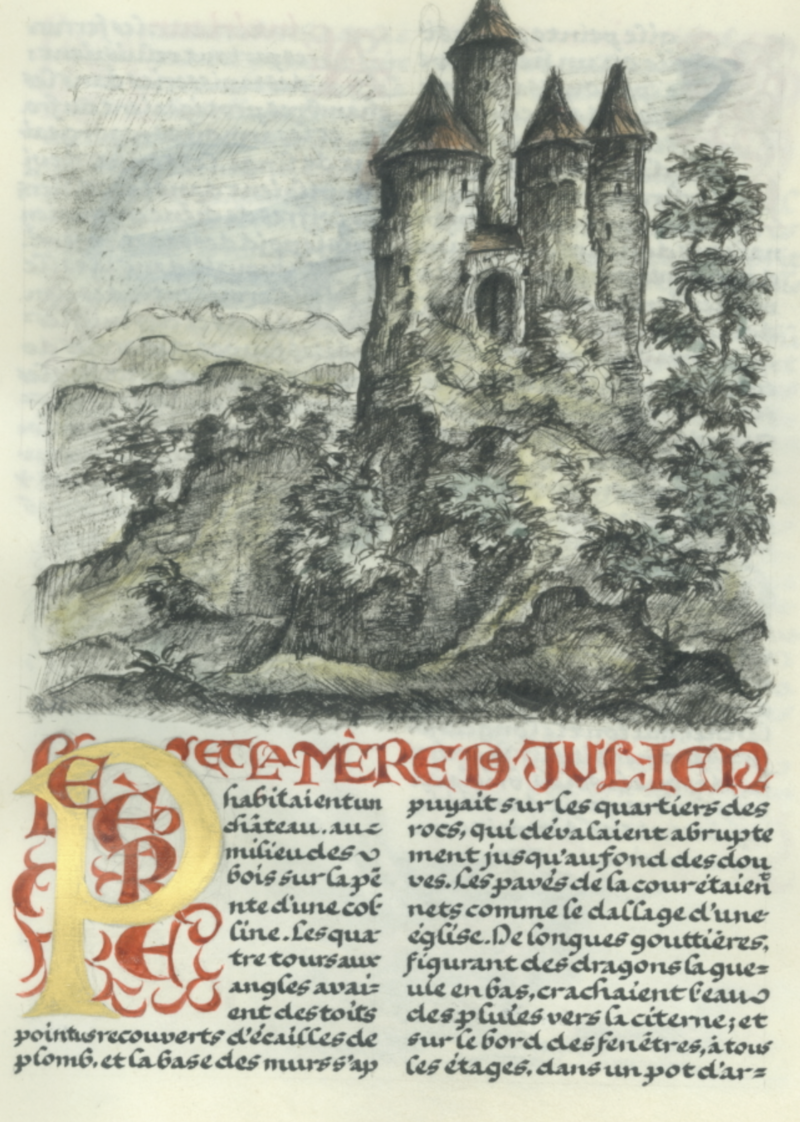 LE PÈRE ET LA MÈRE DE JULIEN
habitaient un
château. au
milieu des
bois sur la pē
nte d'une col
line. Les qua
tre tours aux
angles avai=
ent des toits
pointus recouverts d'écailles de
plomb. et la base des murs s'ap
puyait sur les quartiers des
rocs, qui dévalaient abrupte
ment jusqu'au fond des dou
ves. Les pavés de la cour étaien
nets comme le dallage d'une
église. De longues gouttières,
figurant des dragons la gue=
ule en bas, crachaient l'eau
des pluies vers la citerne; et
sur le bord des fenêtres, à tous
les étages, dans un pot d'ar=